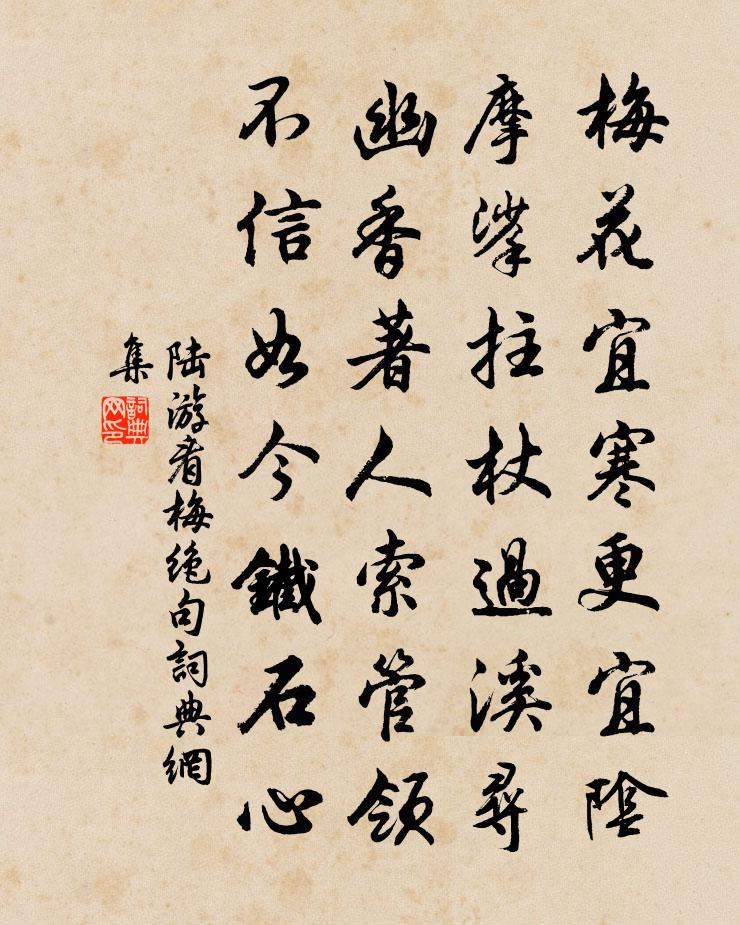 梅花宜寒更宜陰
摩挲拄杖過溪尋
幽香著人索管領
不信如今鐵石心
陸游看梅絶句詞典網
集
詞典
网印